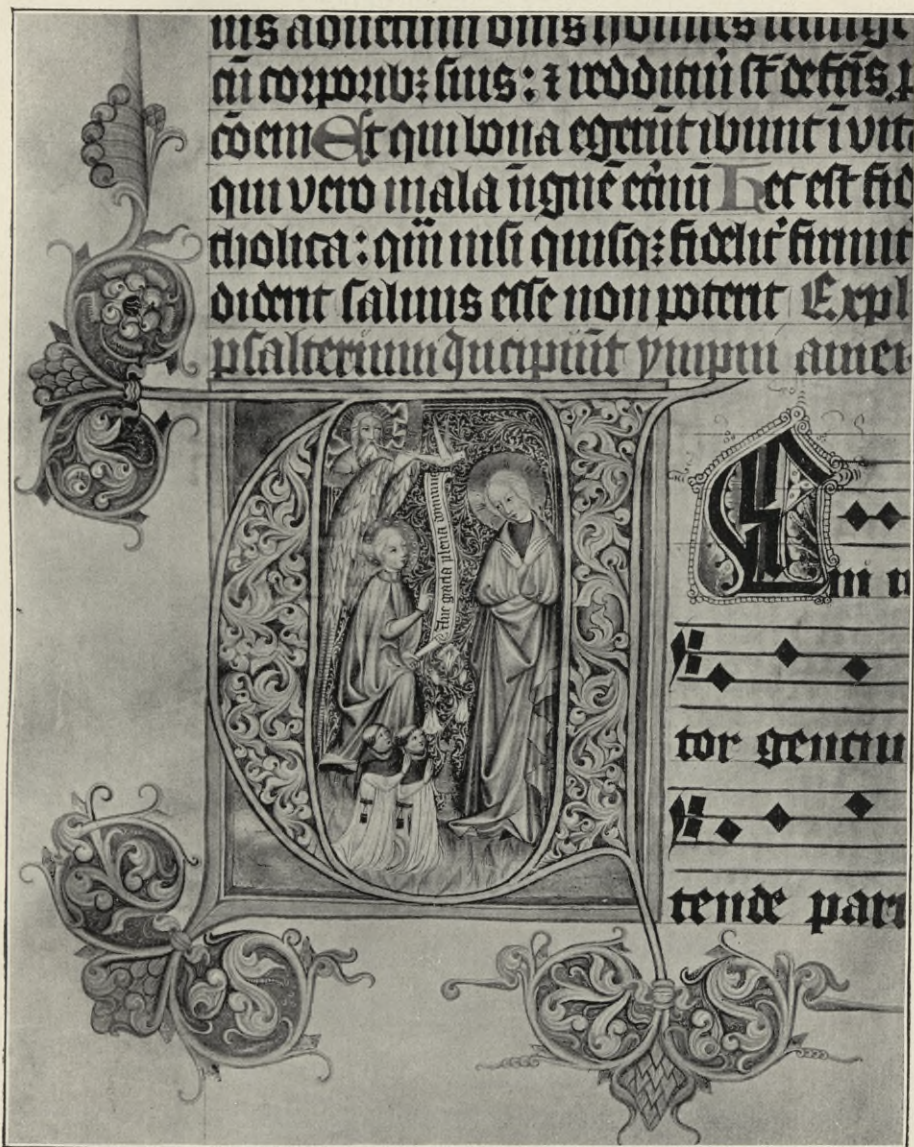 cū corporib; suis: ⁊ reddituri st̄ de fc̄is
Et qui bona egerūt ibunt ī vit
qui vero mala ī ignē et̄nū Hec est fid
tholica: qm̄ nisi quisq; fidelit' firmit
diderit saluus esse non poterit Expl
psalterium Incipiūt ympni
Aue gracia plena dominus
tor genciu
tende pari